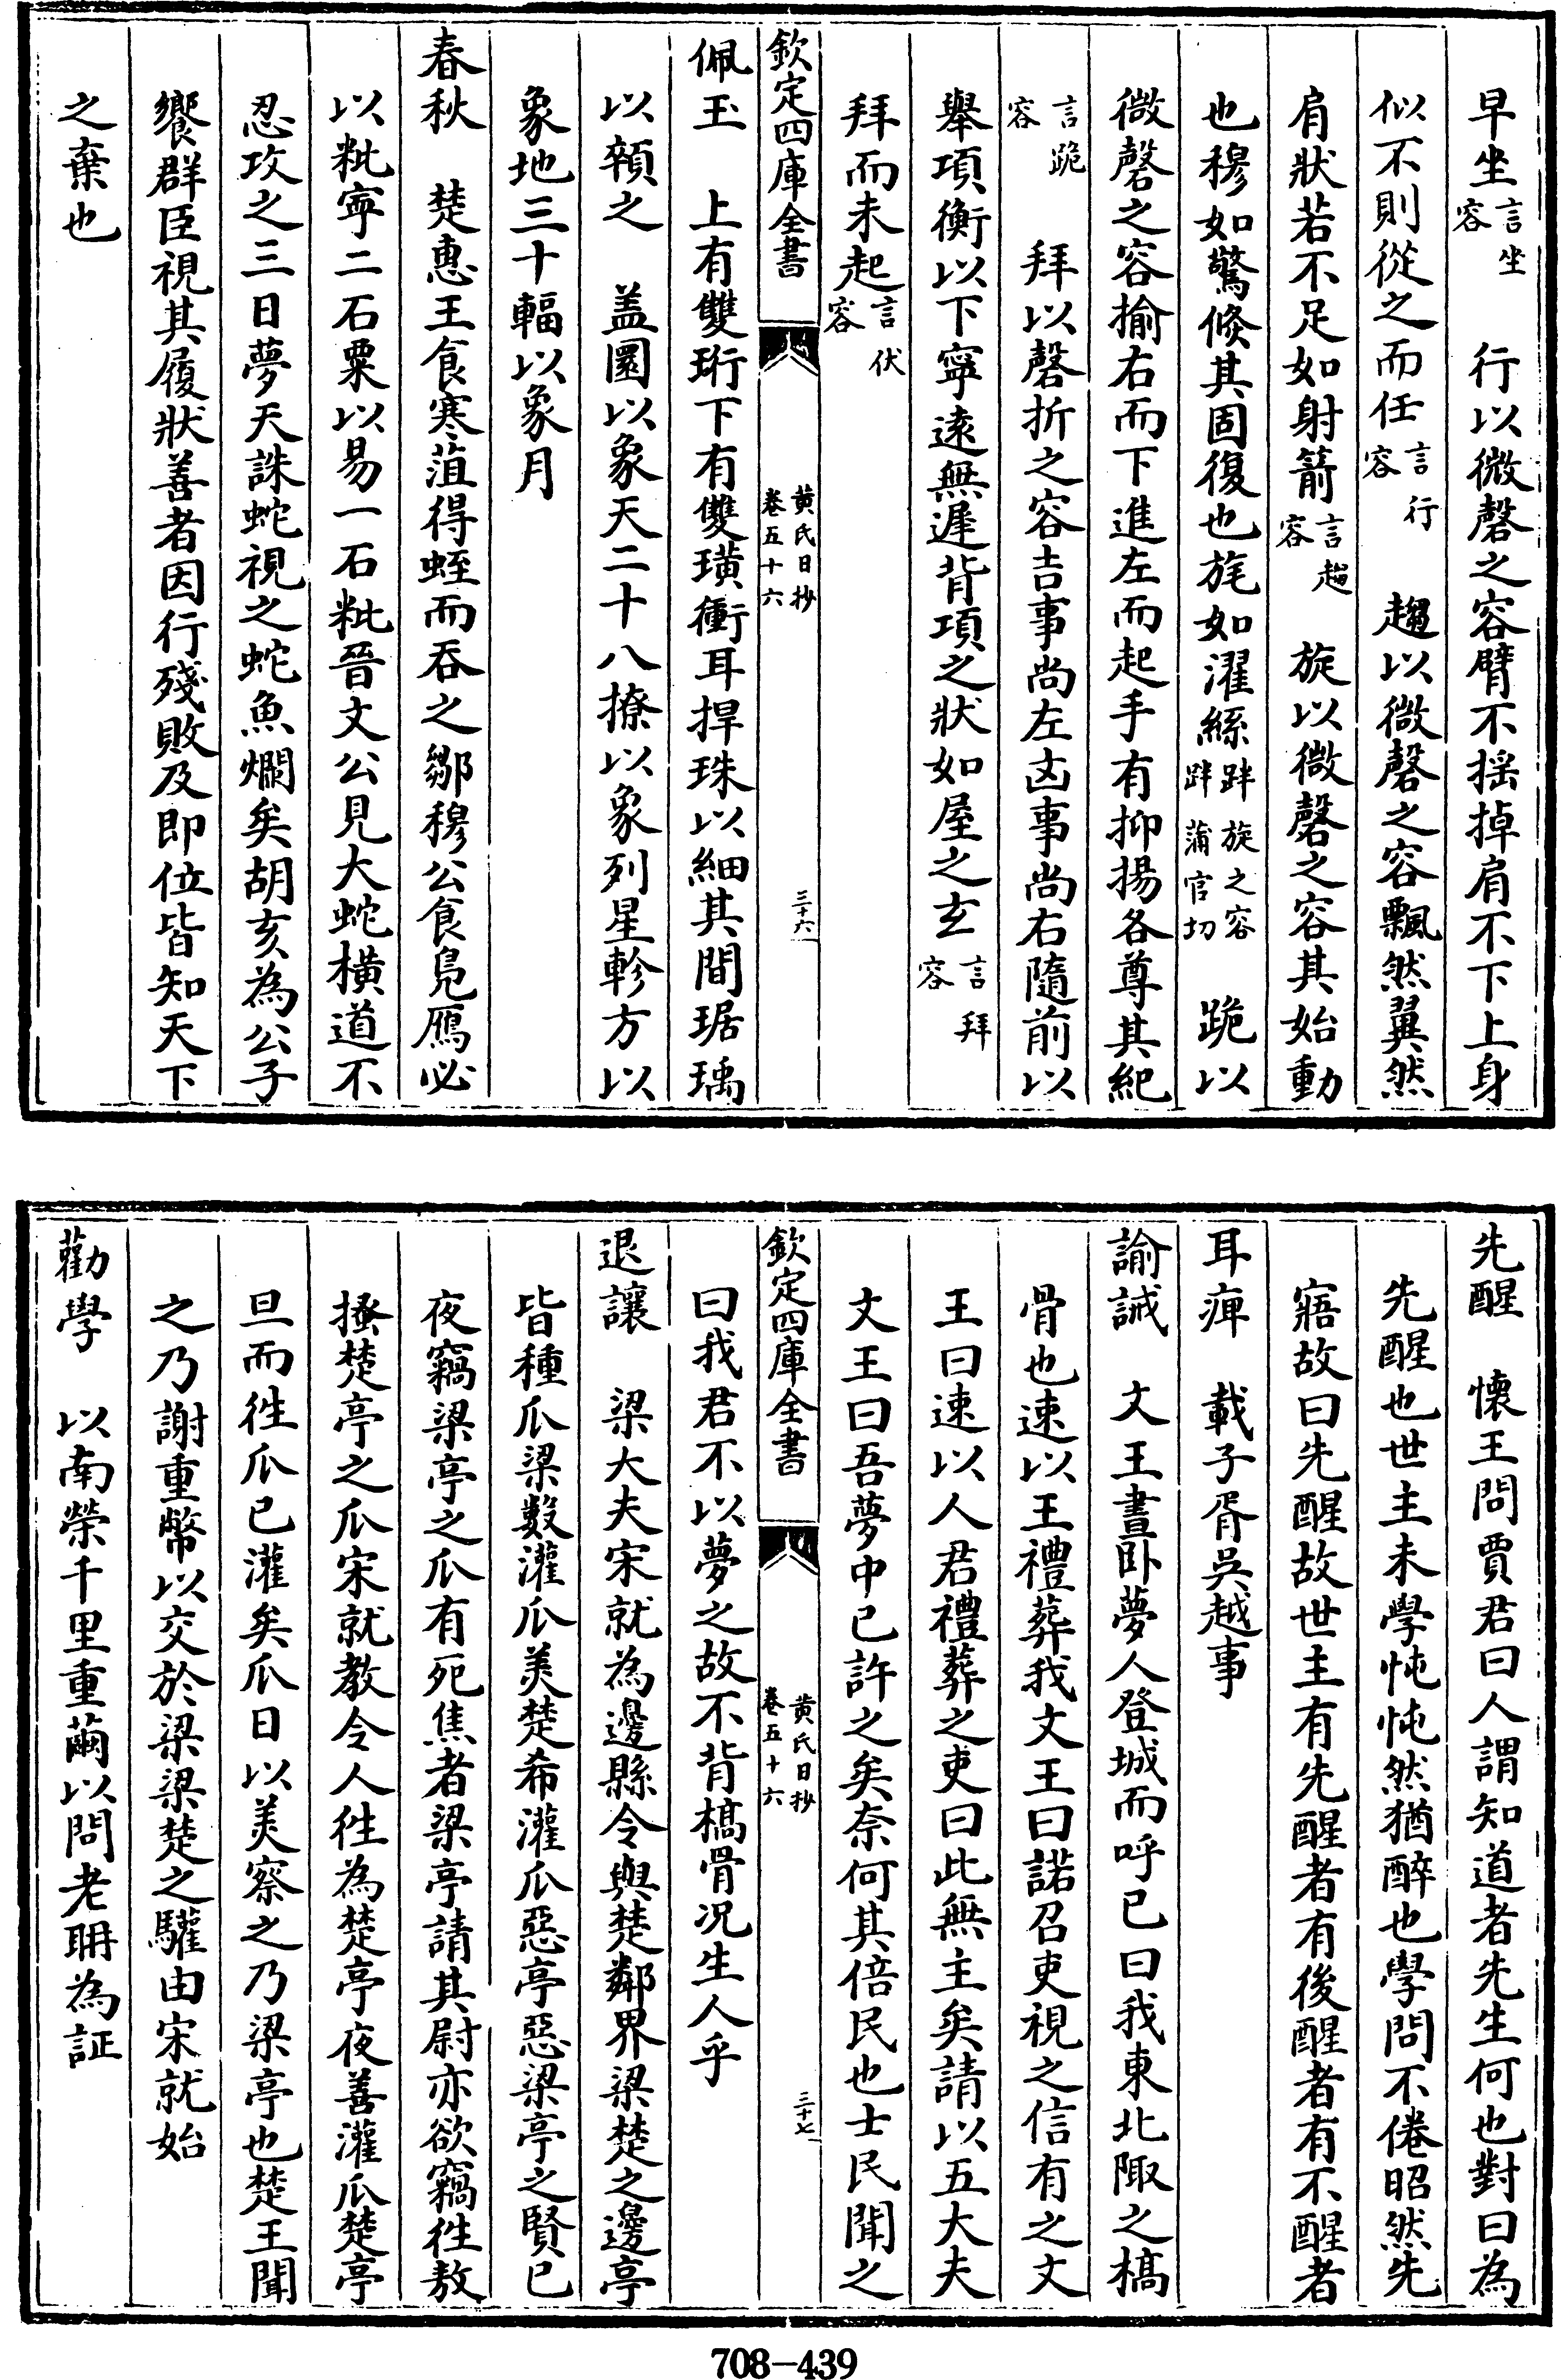 早坐言坐容　行以微磬之容臂不揺掉肩不下上身
似不則從之而任言行容　趨以微磬之容飄然翼然
肩狀若不足如射箭言趨容　旋以微磬之容其始動
也穆如驚倏其固復也旄如濯絲跘旋之容跘蒲官切　跪以
微磬之容揄右而下進左而起手有抑揚各尊其紀
言跪容　拜以磬折之容吉事尚左凶事尚右隨前以
舉項衡以下寧遠無遲背項之狀如屋之玄言拜容
拜而未起言伏容
欽定四庫全書　黄氏日抄卷五十六　三十六
佩玉　上有雙珩下有雙璜衝耳捍珠以細其間琚瑀
以顡之　盖圜以象天二十八撩以象列星軫方以
象地三十輻以象月
春秋　楚惠王食寒葅得蛭而吞之鄒穆公食鳧鴈必
以粃寧二石粟以易一石粃晉文公見大蛇横道不
忍攻之三日夢天誅蛇視之蛇魚爛矣胡亥為公子
饗群臣視其履狀善者因行殘敗及即位皆知天下
之棄也
先醒　懷王問賈君曰人謂知道者先生何也對曰為
先醒也世主未學忳忳然猶醉也學問不倦昭然先
寤故曰先醒故世主有先醒者有後醒者有不醒者
耳痺　載子胥吳越事
諭誡　文王晝卧夢人登城而呼已曰我東北陬之槁
骨也速以王禮葬我文王曰諾召吏視之信有之文
王曰速以人君禮葬之吏曰此無主矣請以五大夫
文王曰吾夢中已許之矣奈何其倍民也士民聞之
欽定四庫全書　黄氏日抄卷五十六　三十七
曰我君不以夢之故不背槁骨况生人乎
退讓　梁大夫宋就為邊縣令與楚鄰界梁楚之邊亭
皆種瓜梁數灌瓜美楚希灌瓜惡亭惡梁亭之賢已
夜竊梁亭之瓜有死焦者梁亭請其尉亦欲竊徃敖
搔楚亭之瓜宋就教令人徃為楚亭夜善灌瓜楚亭
旦而徃瓜已灌矣瓜日以美察之乃梁亭也楚王聞
之乃謝重幣以交於梁梁楚之驩由宋就始
勸學　以南榮千里重繭以問老聃為証
708-439